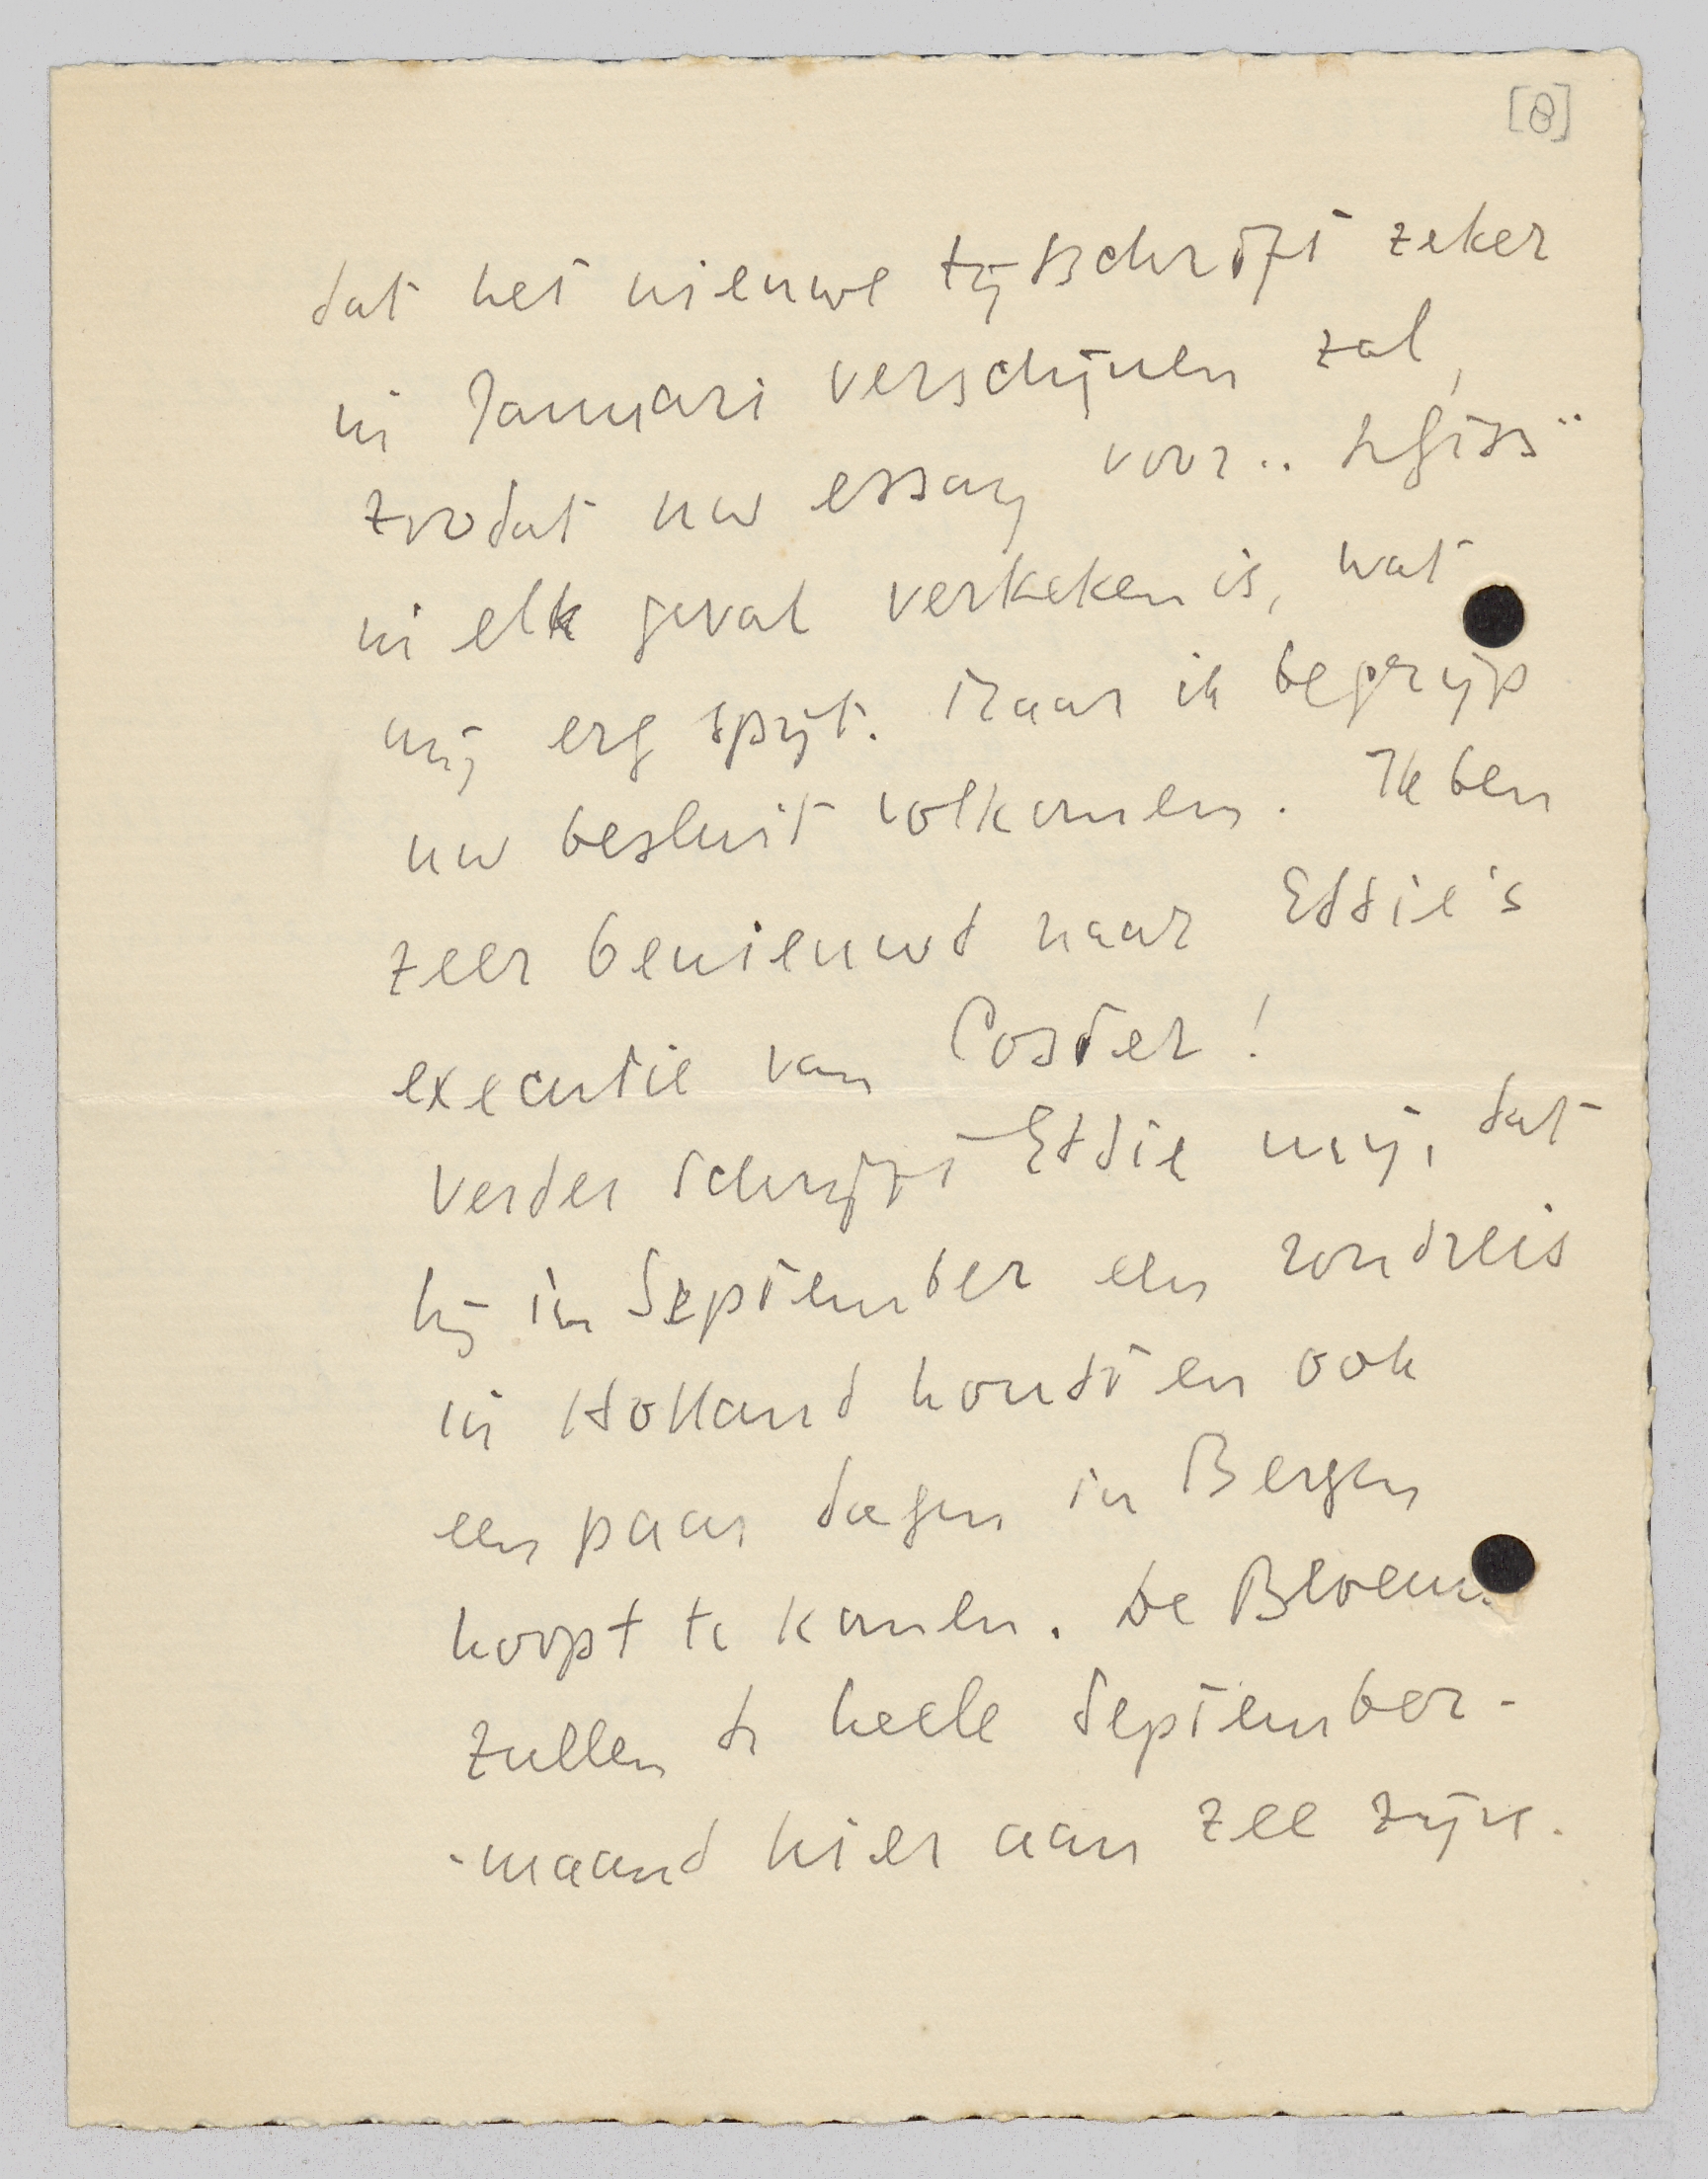 [8]
dat het nieuwe tijdschrift zeker
in Januari verschijnen zal,
zoodat uw essay voor „de Gids"
in elk geval verkeken is, wat
mij erg spijt. Maar ik begrijp
uw besluit volkomen. Ik ben
zeer benieuwd naar Eddie's
executie van Coster!
Verder schrijft Eddie mij, dat
hij in September een rondreis
in Holland houdt en ook
een paar dagen in Bergen
hoopt te komen. De Bloems
zullen de heele September-
-maand hier aan zee zijn.